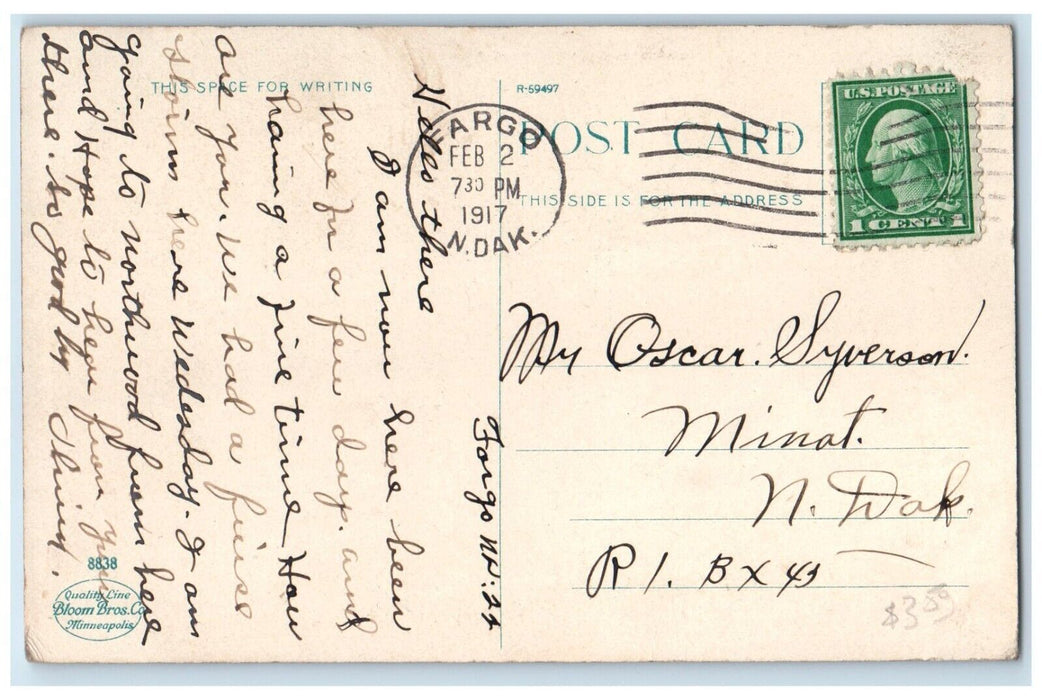 THIS SPACE FOR WRITING
Fargo N.D. 2
Hello there
I am now here been
here for a few days. and
having a fine time How
are you. We had a fierce
storm here Wedesday. I am
going to northwood from here
and Hope to hear from you
there. So good by
8838
Quality Line
Bloom Bros. Co
Minneapolis
R-59497
POST CARD
THIS SIDE IS FOR THE ADDRESS
FARGO
FEB 2
7 30 PM
1917
N. DAK.
U.S. POSTAGE
1 CENT 1
Mr Oscar. Syverson.
Minot.
N. Dak.
R 1. BX 43
$3.50